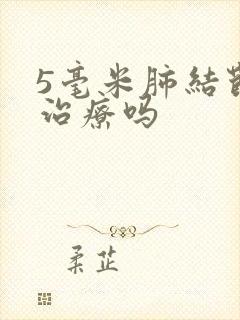 5毫米肺結
治療吗
柔芷